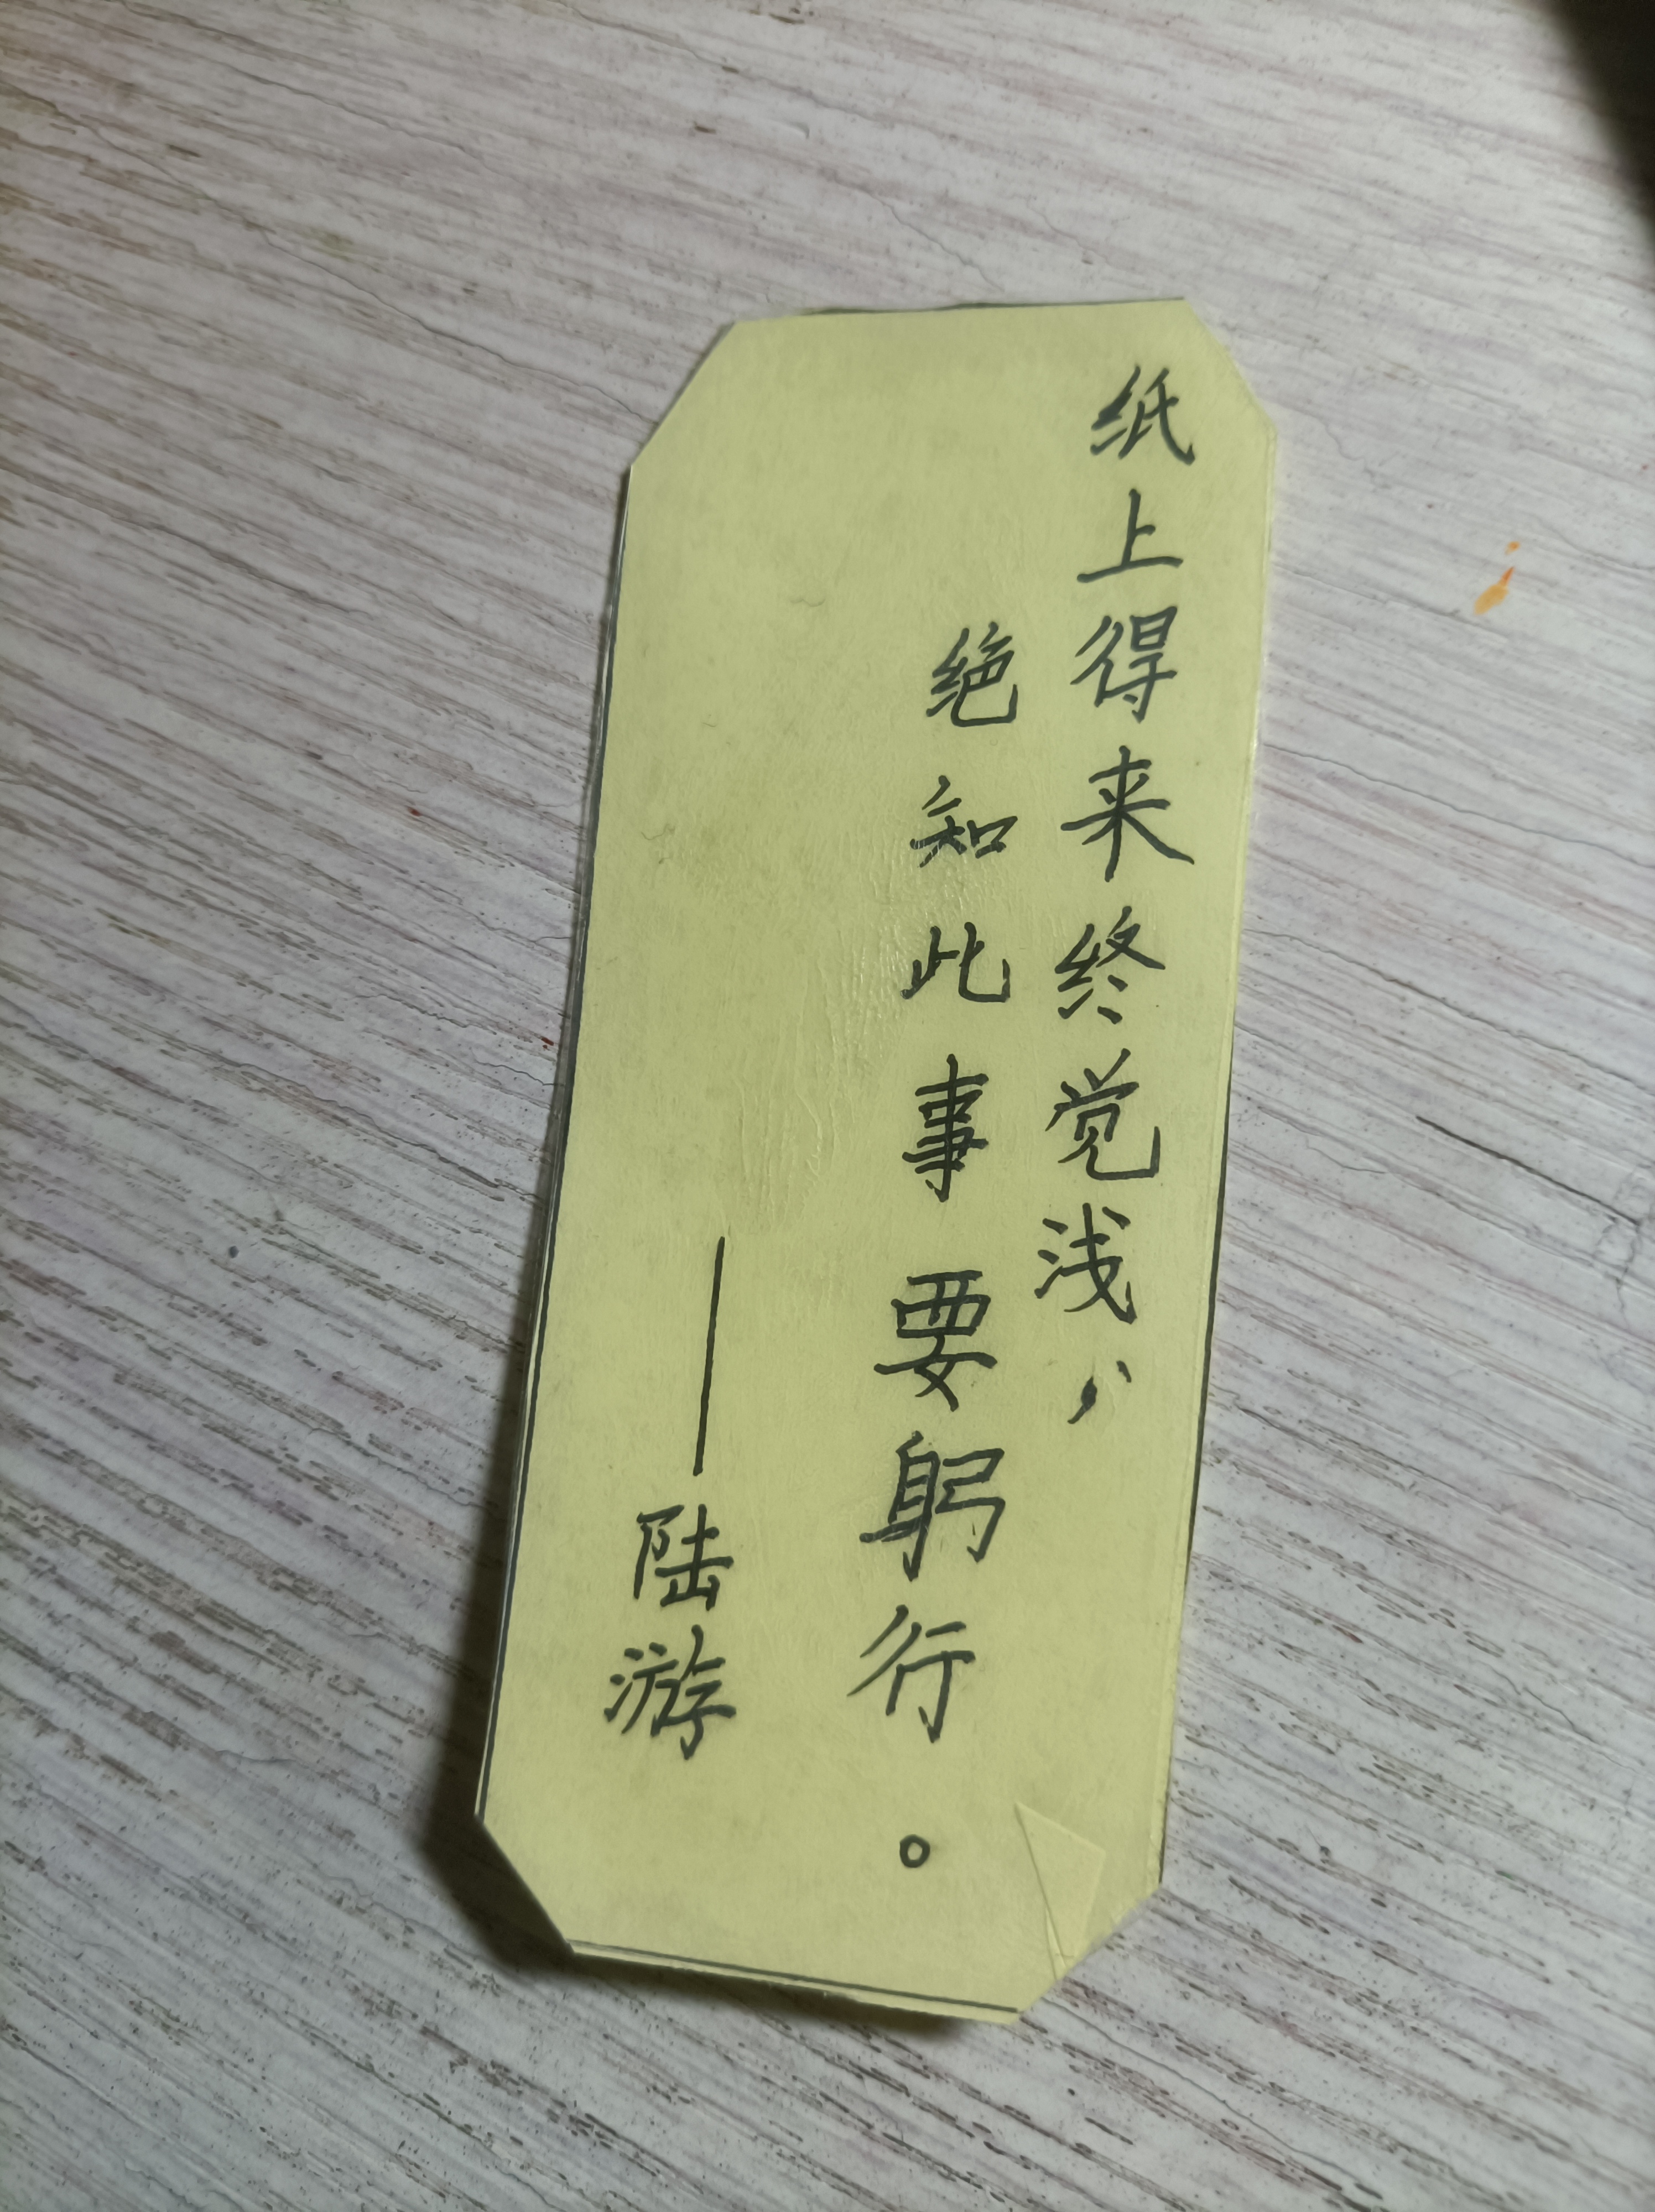 纸上得来终觉浅，
绝知此事要躬行。
——陆游